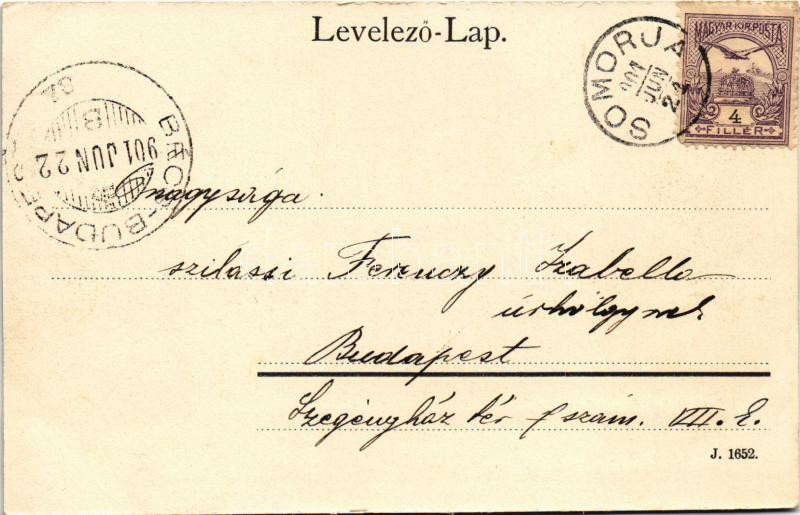 Levelező-Lap.
MAGYAR KIR. POSTA
4
FILLÉR
SOMORJA
901
JUN
22
BÉCS-BUDAPEST
901 JUN 22
nagysága
szilassi Ferenczy Izabella
úrhölgynek
Budapest
Szegényház tér szám. VII. E.
J. 1652.